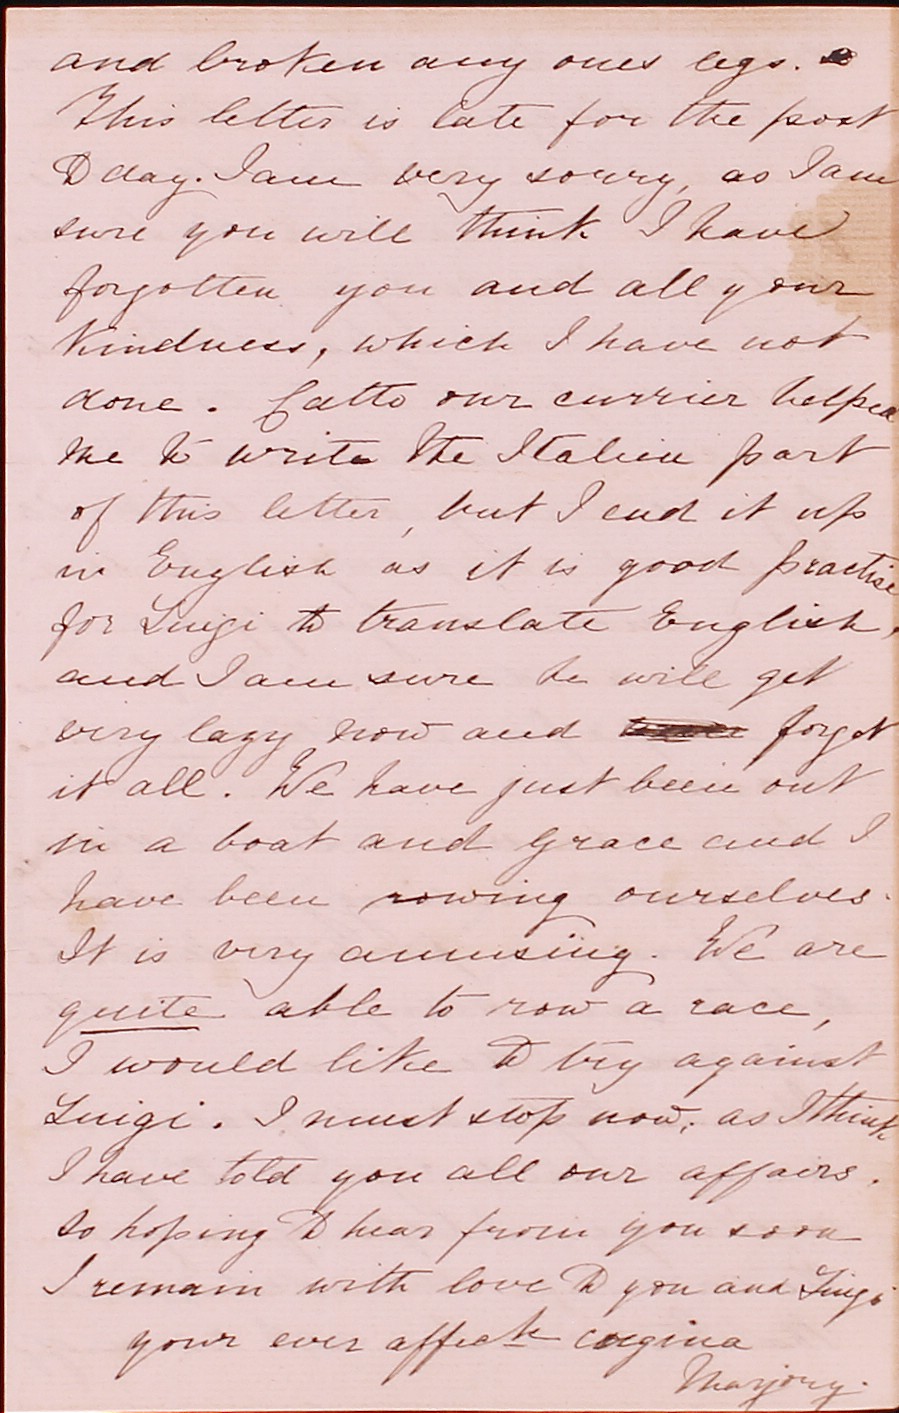 and broken any ones legs.
This letter is late for the post
To day. I am very sorry, as I am
sure you will think I have
forgotten you and all your
kindness, which I have not
done. Catto our currier helped
me to write the Italien part
of this letter, but I end it up
in English as it is good practise
for Luigi to translate English,
and I am sure he will get
very lazy now and forget
it all. We have just been out
in a boat and Grace and I
have been rowing ourselves.
It is very amusing. We are
quite able to row a race,
I would like to try against
Luigi. I must stop now, as I think
I have told you all our affairs.
So hoping to hear from you soon
I remain with love to you and Luigi
your ever affecte cugina
Marjory.